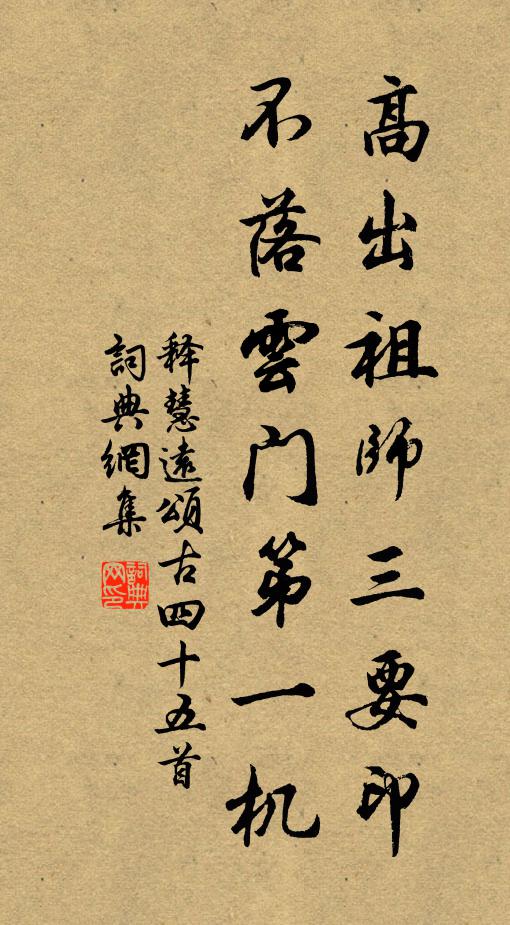 高出祖師三要印
不落雲门第一机
释慧遠頌古四十五首
詞典網集
詞典网印